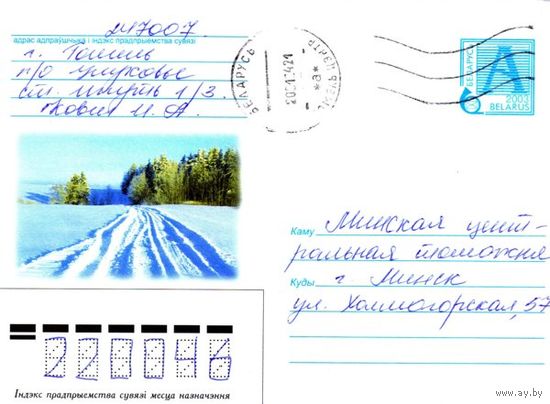 247007
адрас адпраўшчыка і індэкс прадпрыемства сувязі
г. Гомель
п/о Улуковье
ст. 1/3.
И. А.
БЕЛАРУСЬ
БЕЛАРУСЬ
A
2003
BELARUS
Каму Минская цент-
ральная таможня
Куды г. Минск
ул. Холмогорская, 57
220046
Індэкс прадпрыемства сувязі месца назначэння
www.ay.by